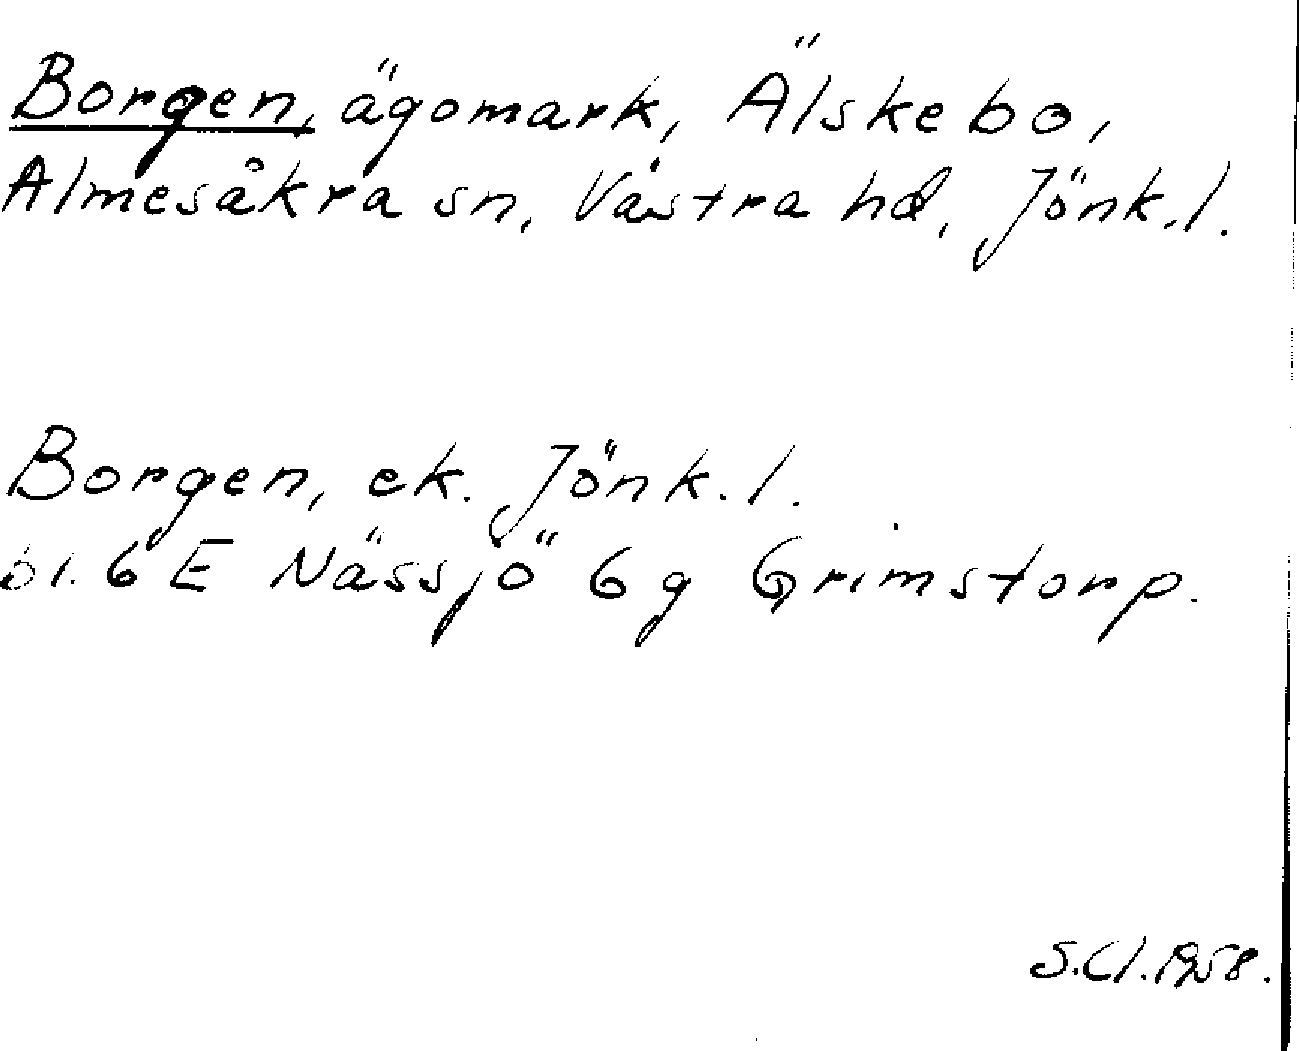 Borgen, ägomark, Älskebo,
Almesåkra sn, Västra hd, Jönk.l.
Borgen, ek. Jönk.l.
bl. 6 E Nässjö 6 g Grimstorp.
S.Cl.1958.